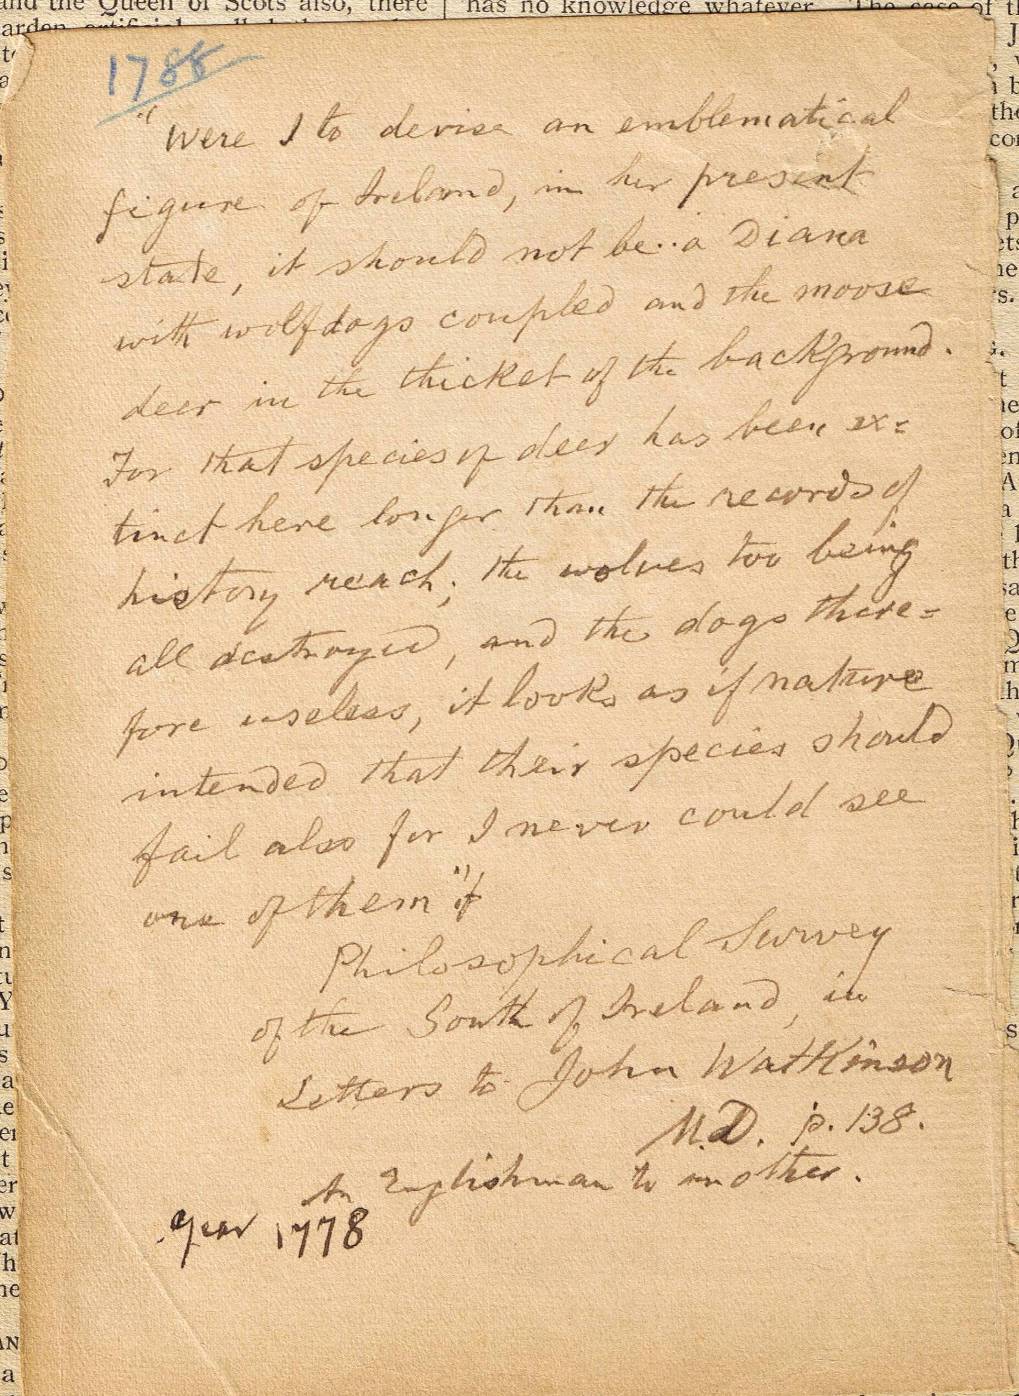 and the Queen of Scots also, there
has no knowledge whatever. The case of
1788
"Were I to devise an emblematical
figure of Ireland, in her present
state, it should not be a Diana
with wolfdogs coupled and the moose
deer in the thicket of the background.
For that species of deer has been ex=
tinct here longer than the records of
history reach; the wolves too being
all destroyed, and the dogs there=
fore useless, it looks as if nature
intended that their species should
fail also for I never could see
one of them"
Philosophical Survey
of the South of Ireland, in
Letters to John Watkinson
M.D. p. 138.
An Englishman to another.
Year 1778